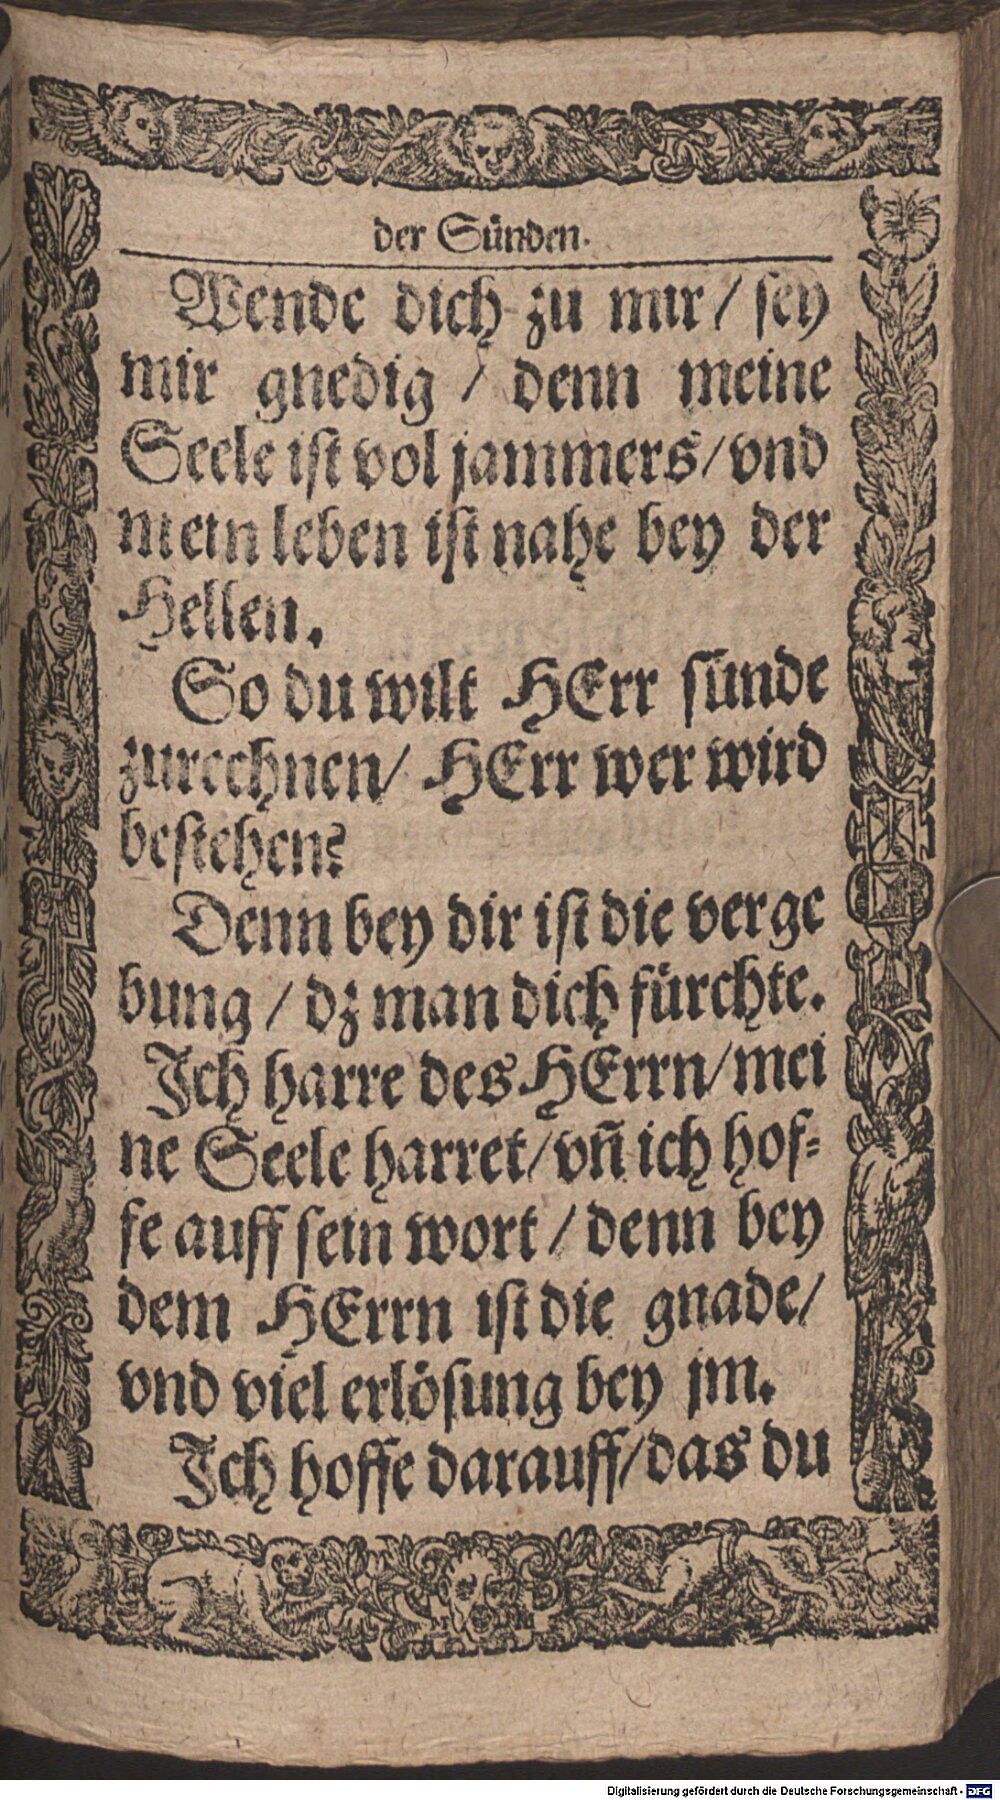 der Sünden.
Wende dich zu mir / sey
mir gnedig / denn meine
Seele ist vol jammers / vnd
mein leben ist nahe bey der
Hellen.
So du wilt HErr sünde
zurechnen / HErr wer wird
bestehen?
Denn bey dir ist die verge
bung / dz man dich fürchte.
Ich harre des HErrn / mei
ne Seele harret / vñ ich hof=
fe auff sein wort / denn bey
dem HErrn ist die gnade /
vnd viel erlösung bey jm.
Ich hoffe darauff / das du
Digitalisierung gefördert durch die Deutsche Forschungsgemeinschaft - DFG